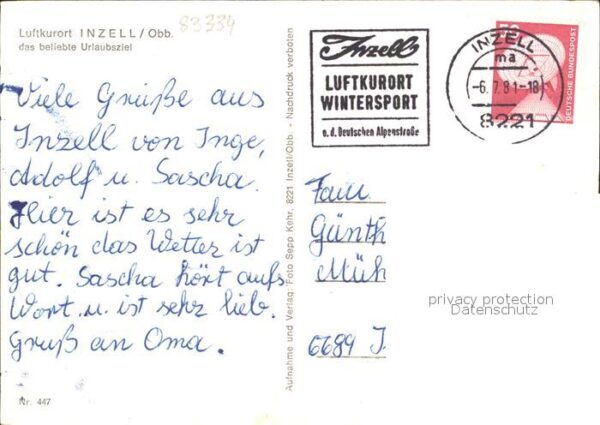 Luftkurort INZELL/Obb.
das beliebte Urlaubsziel
83334
Viele Grüße aus
Inzell von Inge,
Adolf u. Sascha.
Hier ist es sehr
schön das Wetter ist
gut. Sascha hört aufs
Wort u. ist sehr lieb.
Gruß an Oma.
Nr. 447
Aufnahme und Verlag: Foto Sepp Kehr, 8221 Inzell/Obb - Nachdruck verboten
Inzell
LUFTKURORT
WINTERSPORT
a. d. Deutschen Alpenstraße
INZELL
ma
-6.7.81-18
8221
50
DEUTSCHE BUNDESPOST
Günth
Müh
privacy protection
Datenschutz
6689